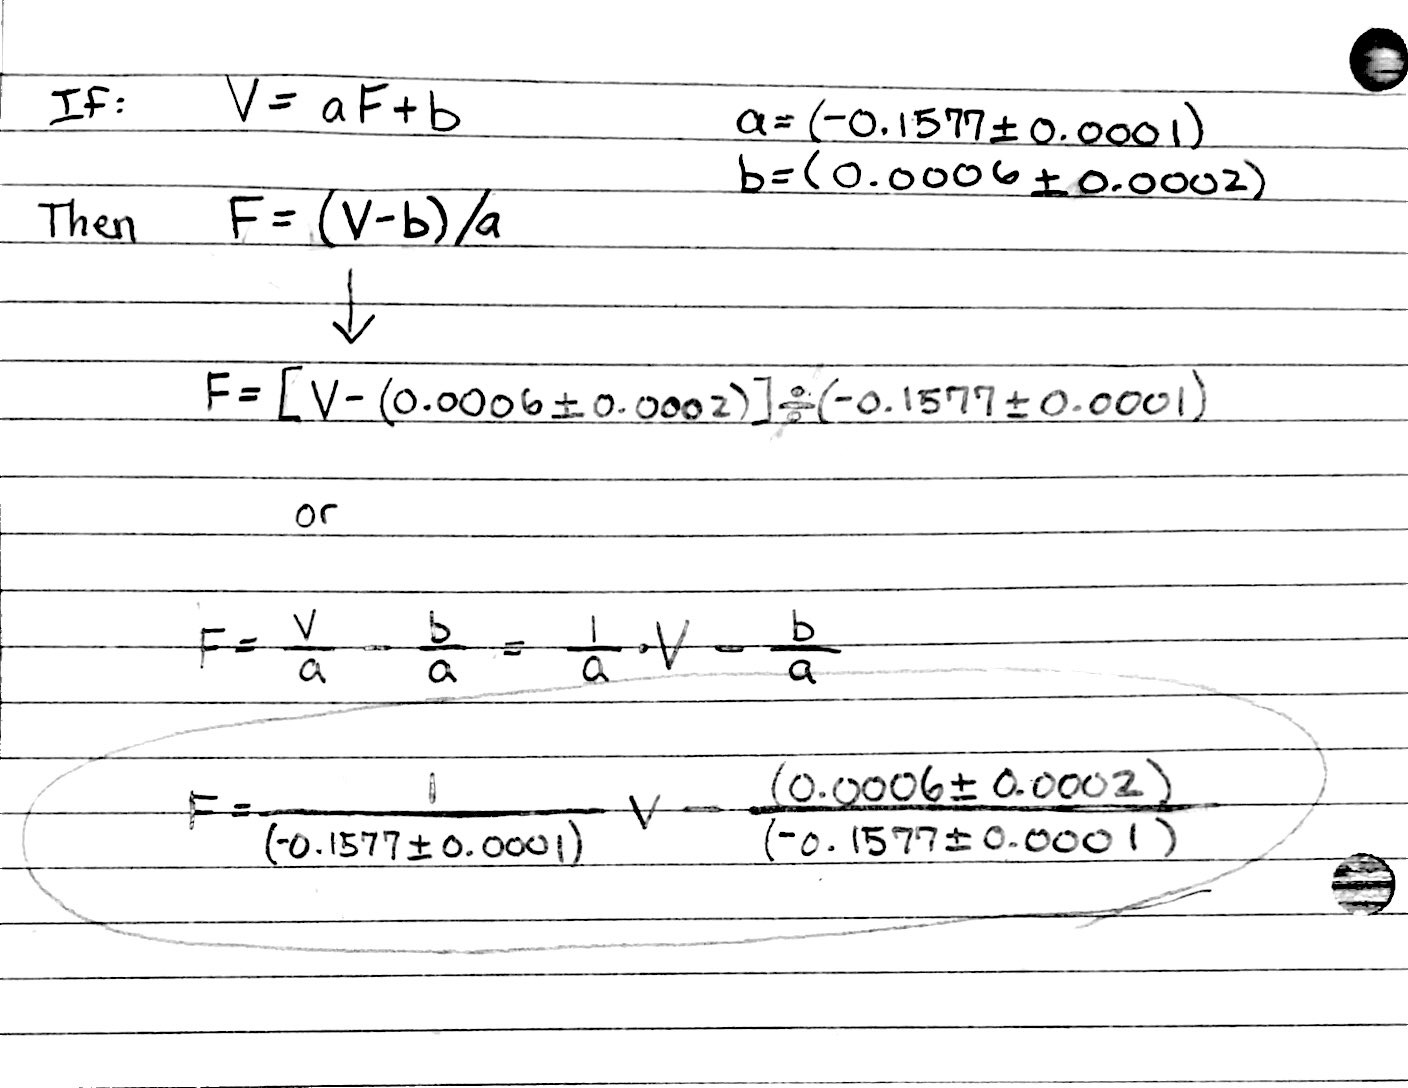 If: V = aF + b
a = (-0.1577 ± 0.0001)
b = (0.0006 ± 0.0002)
Then F = (V-b)/a
↓
F = [V - (0.0006 ± 0.0002)] ÷ (-0.1577 ± 0.0001)
or
F = V/a - b/a = 1/a · V - b/a
F = 1/(-0.1577 ± 0.0001) V - (0.0006 ± 0.0002)/(-0.1577 ± 0.0001)